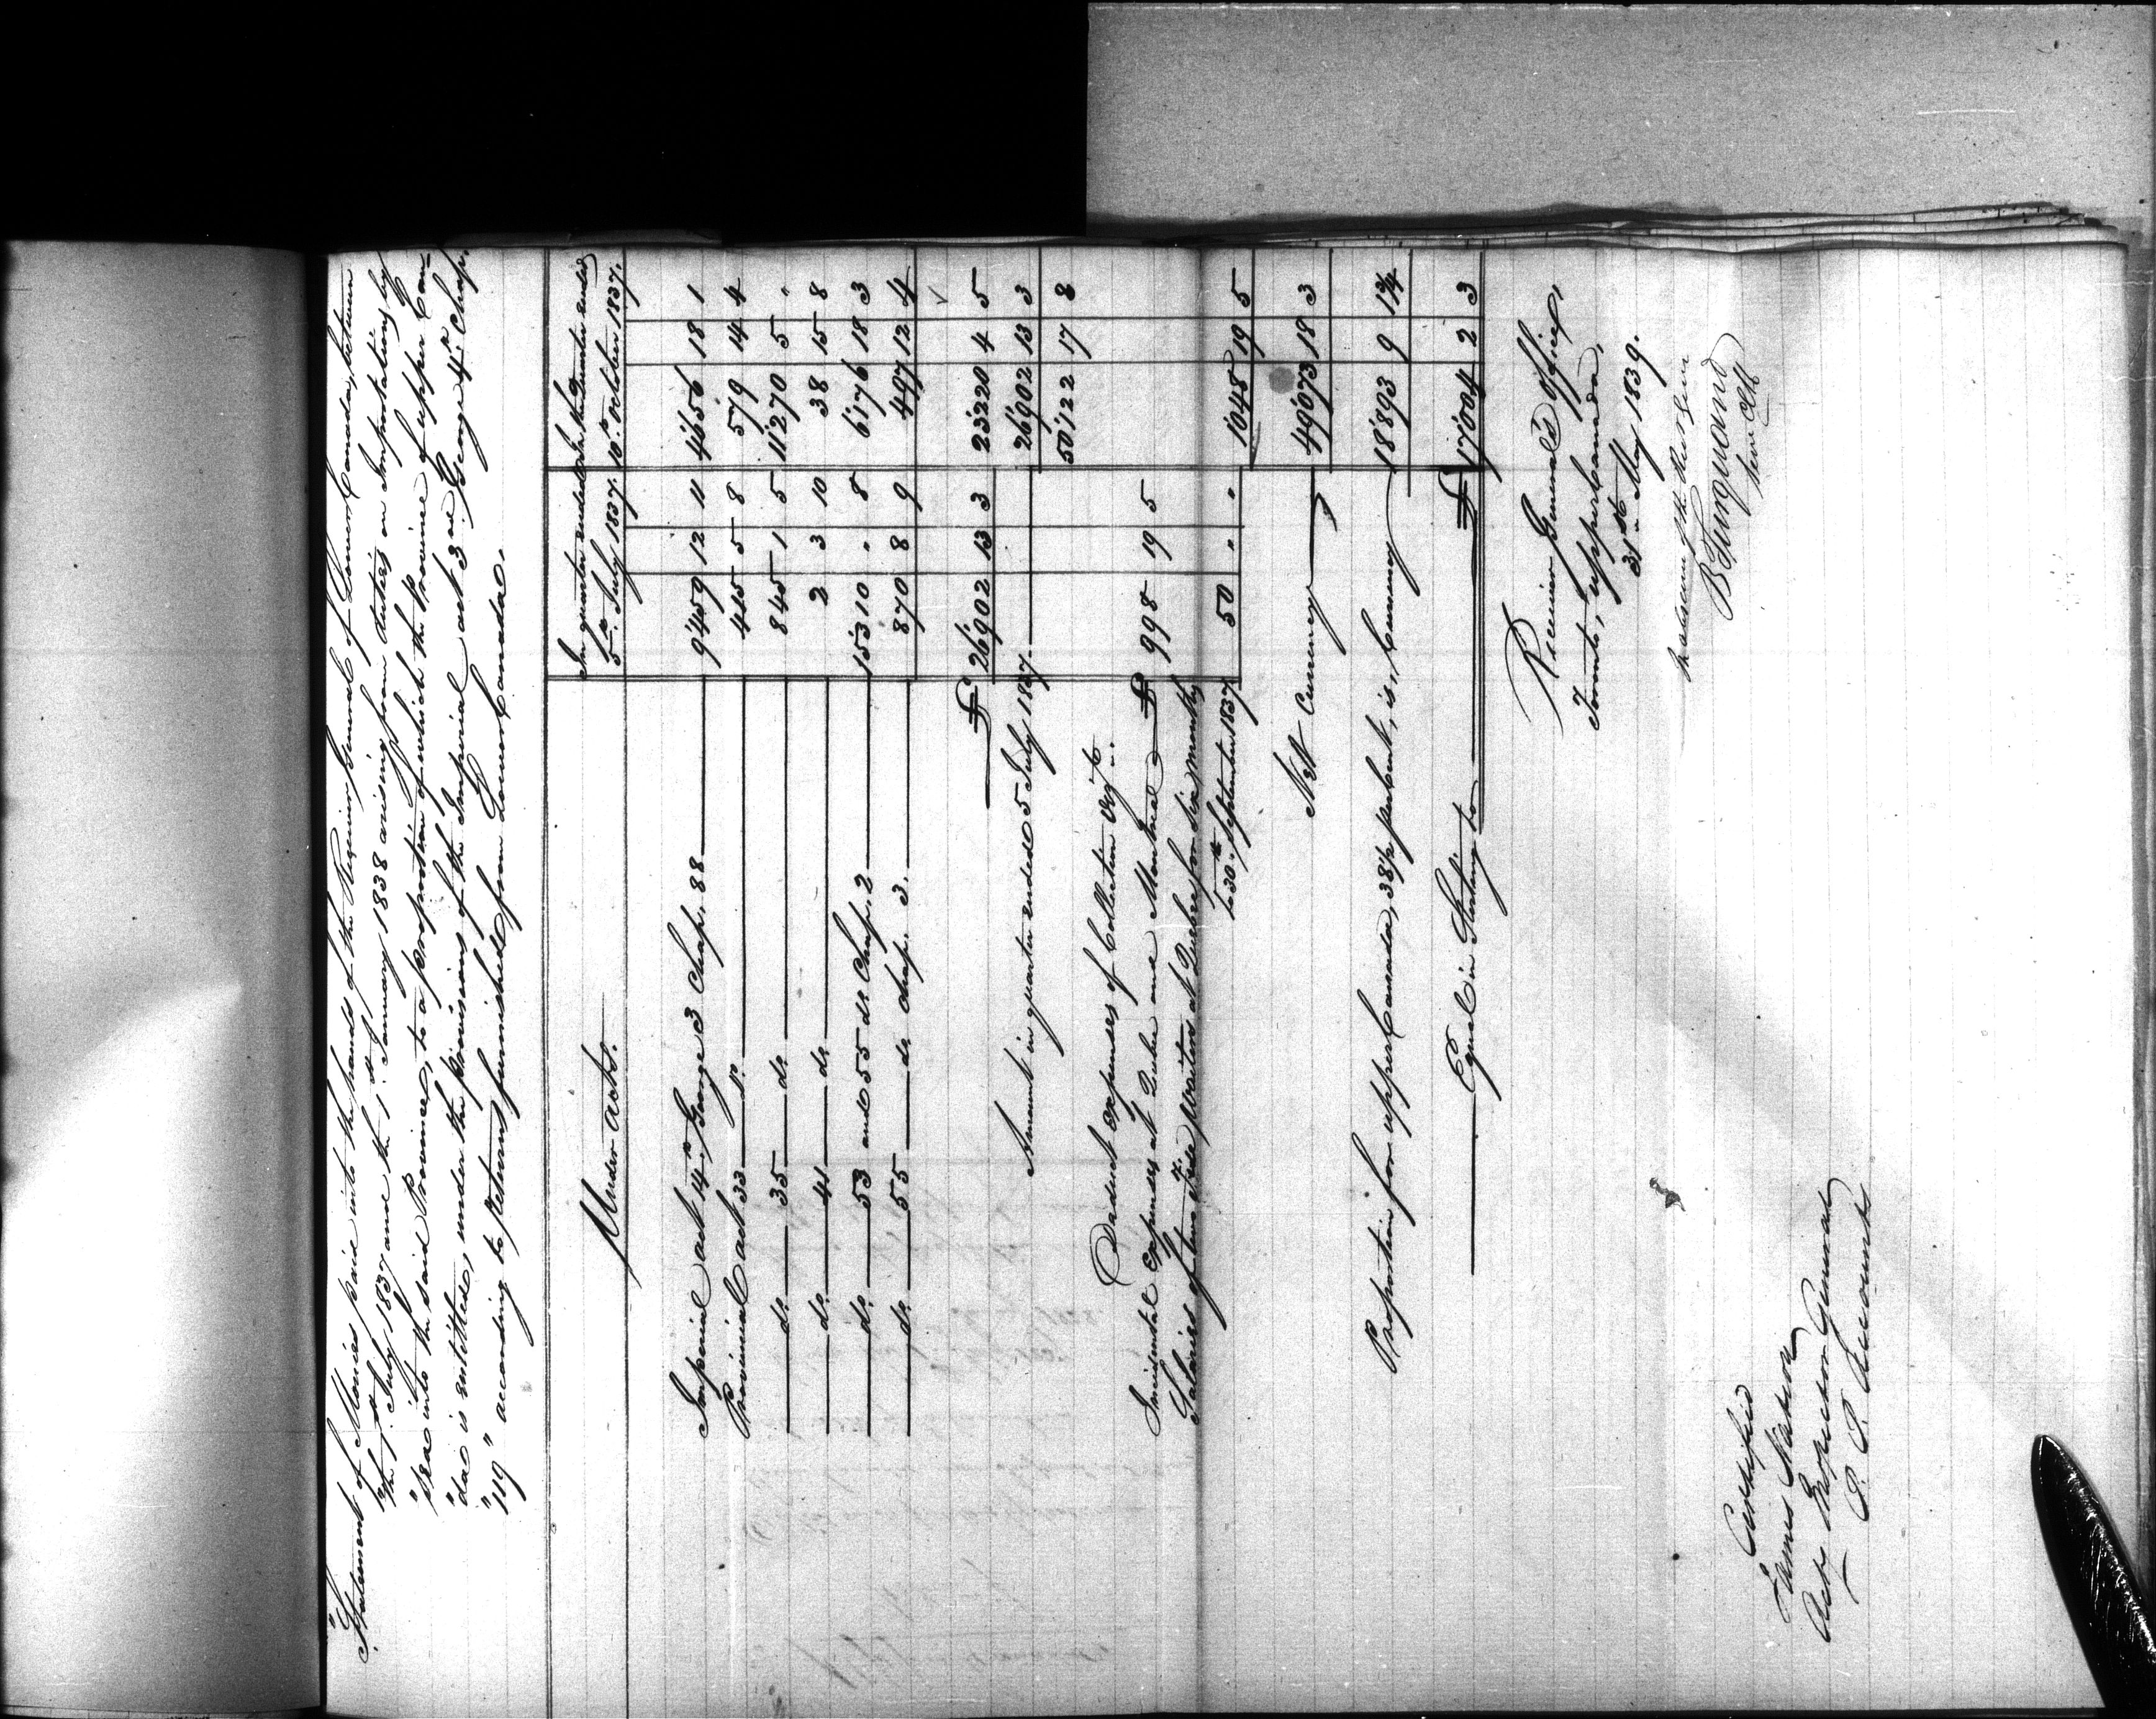 "Statement of Monies paid into the hands of the Receiver General of Lower Canada, between
the 1st July 1837 and the 1st January 1838 arising from duties on Importations by
"Sea into the said Province, to a proportion of which the Province of Upper Cana-
"da is entitled, under the provisions of the Imperial act 3rd George 4th Chap.
"119" according to Returns furnished from Lower Canada.
Under Acts. In quarter ended 5th July 1837. In the Quarter ended 10th October 1837.
Imperial act 14th George 3 Chap. 88 9'459 12 11 4'656 18 1
Provincial act 33 do. 415 5 8 579 14 4
do. 35 do. 845 1 5 11'270 5 "
do. 41 do. 2 3 10 38 15 8
do. 53 and 55 do. Chap. 2 15'310 " 8 6'176 18 3
do. 55 do. chap. 3. 870 8 9 497 12 4
£ 26'902 13 3 23'220 4 5
Amount in quarter ended 5 July 1837. 26'902 13 3
50'122 17 8
Deduct expenses of Collection vizt.
Incidental Expenses at Quebec and Montreal £ 998 19 5
Salaries of two Tide Waiters at Quebec for six months
to 30th September 1837 50 " " 1'048 19 5
Nett Currency 49'073 18 3
Proportion for Upper Canada, 38½ per Cent, is, Currency 18'893 9 1¾
Equal in Sterling to £ 17'004 2 3
Receiver General's Office,
Toronto, Upper Canada,
31st May 1839.
B Turquand
Certified
James Nation
Actg Inspector General
P. P. Accounts